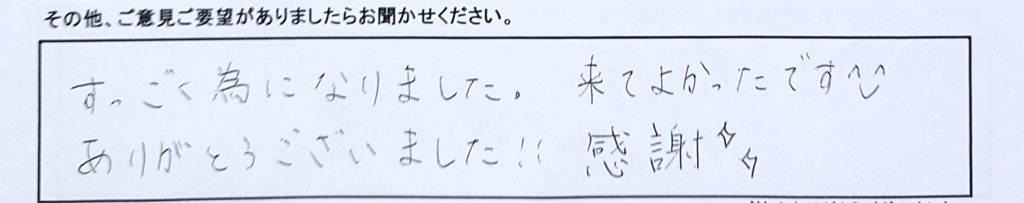 その他、ご意見ご要望がありましたらお聞かせください。
すっごく為になりました。 来てよかったです^^
ありがとうございました!! 感謝